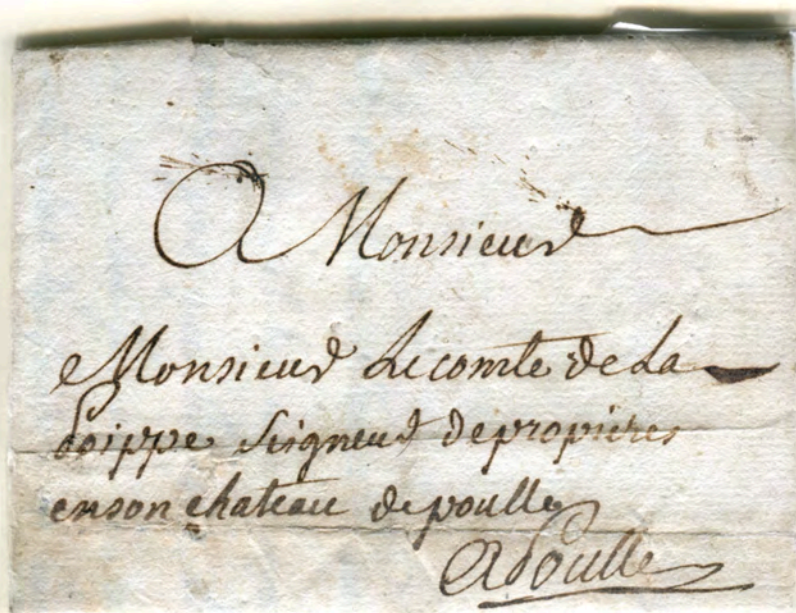 A Monsieur
Monsieur Le comte de La
poippe Seigneur de propieres
en son chateau de poulle
A Poulle